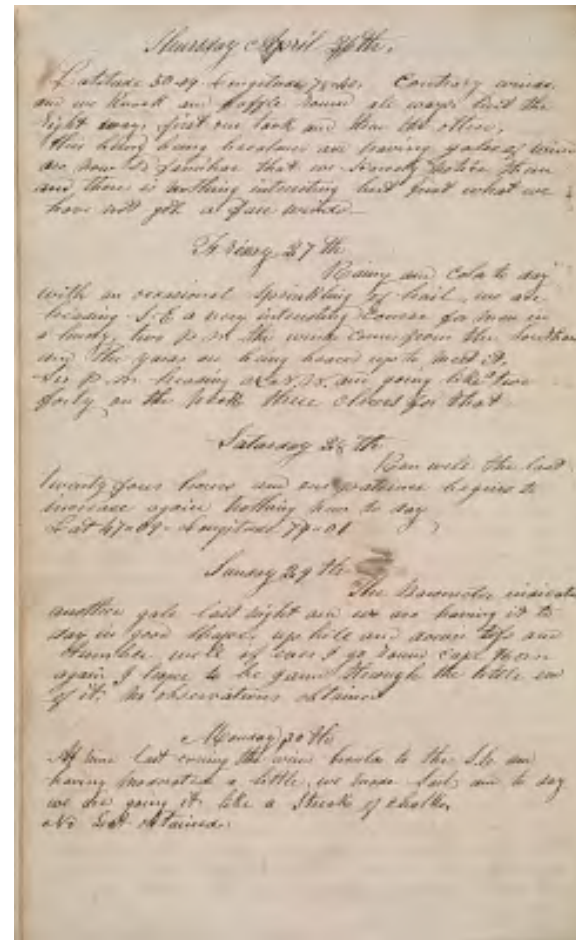 Thursday April 26th.
Latitude 50-09 Longitude 78-40. Contrary winds.
and we knock and baffle round all ways but the
right way, first one tack and then the other.
this being being becalmed and having gales of wind
are now so familiar that we scarcely notice them
and there is nothing interesting but just what we
have not got a fair wind
Friday 27th
Rainy and Cold to day
with an occasional sprinkling of hail, we are
heading S.E a very interesting course for men in
a hurry, two p.m the wind comes from the Southard
and the yards are being braced up to meet it.
Six p.m heading and are going like two
forty on the three cheers for that
Saturday 28th
Ran well the last
twenty four hours and our patience begins to
increase again Nothing new to day
Lat 47-09 Longitude 79-01
Sunday 29th
The Barometer indicated
another gale last night and we are having it to
day in good shape, up hill and down tips and
tumbles well if ever I go round Cape Horn
again I hope to be jamed through the little end
of it. No observations obtained
Monday 30th
At nine last evening the wind hauled to the S.E and
having moderated a little, we made sail, and to day
we are going it like a Streak of chalk
No Lat obtained.